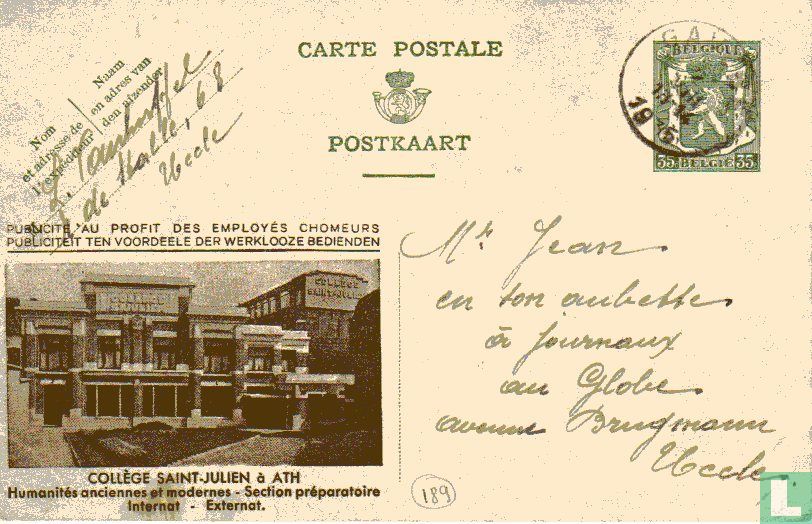 CARTE POSTALE
POSTKAART
Nom
et adresse de
l'expéditeur
Naam
en adres van
den afzender
de Stalle, 68
Uccle
BELGIQUE
35 BELGIË 35
PUBLICITÉ AU PROFIT DES EMPLOYÉS CHOMEURS
PUBLICITEIT TEN VOORDEELE DER WERKLOOZE BEDIENDEN
COLLÈGE
SAINT-JULIEN
COLLÈGE SAINT-JULIEN à ATH
Humanités anciennes et modernes - Section préparatoire
Internat - Externat.
Mr Jean
en son aubette
à journaux
au Globe
avenue Brugmann
Uccle
189
L